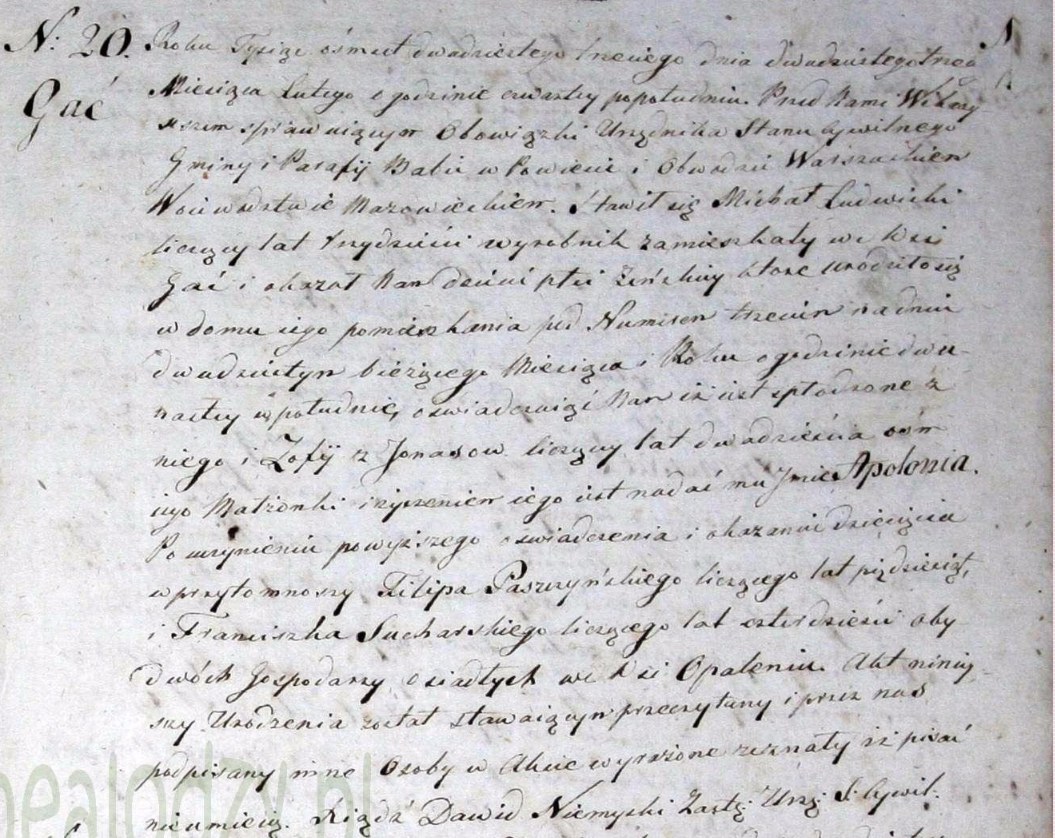 N: 20. Roku Tysiąc ośmset dwudziestego trzeciego dnia dwudziestego trzeci
Gać Miesiąca Lutego o godzinie czwartey popołudniu. Przed Nami
sprawuiącym Obowiązki Urzędnika Stanu Cywilnego
Gminy i Parafij Babic w Powiecie i Obwodzie Warszawskiem
Woiewodztwie Mazowieckiem. Stawił się Michał Ludwicki
liczący lat trzydzieści wyrobnik zamieszkały we Wsi
Gać i okazał Nam dziecie płci Żeńskiey ktore urodziło się
w domu iego pomieszkania pod Numerem trzecim na dniu
dwudziestym bieżącego Miesiąca i Roku o godzinie dwu-
nastey w południe, oswiadczaiąc Nam iż iest spłodzone z
niego i Zofij z Jonasow liczący lat dwadzieścia ośm
iego Małżonki i życzeniem iego iest nadać mu Jmie Apolonia.
Po uczynieniu powyższego oswiadczenia i okazaniu dziecięcia
w przytomnosci Filipa Paszczyńskiego liczącego lat pięćdziesiąt,
i Franciszka Sucharskiego liczącego lat czterdzieści oby
dwóch Gospodarzy osiadłych we Wsi Opaleniu. Akt niniey-
szy Urodzenia został stawaiącym przeczytany i przez nas
podpisany inne Osoby w Akcie wyrażone zeznały iż pisać
nieumieią. Xiądz Dawid Niemyski Zastę: Urzę: S: Cywil.
nealodzy.pl